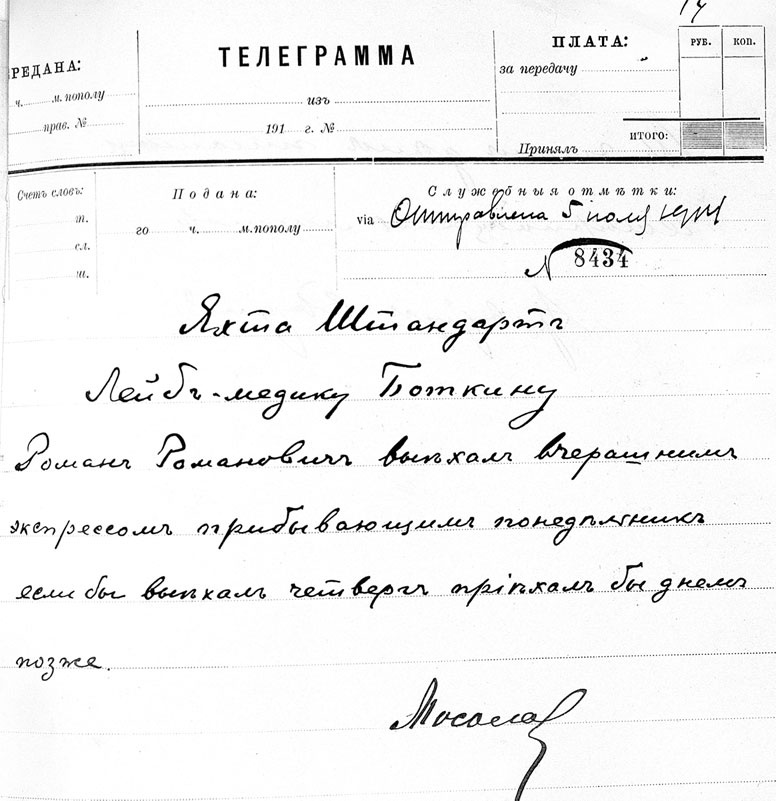 14
РЕДАНА:
ч. м. пополу
прав. №
ТЕЛЕГРАММА
изъ
191 г. №
ПЛАТА:
за передачу
Принялъ
РУБ. КОП.
ИТОГО:
Счетъ словъ:
т.
сл.
ш.
Подана:
го ч. м. пополу
Служебныя отмѣтки:
via Отправлена 5 июля 1914
N 8434
Яхта Штандартъ
Лейбъ-медику Боткину
Романъ Романовичъ выѣхалъ вчерашнимъ
экспрессомъ прибывающимъ понедѣльникъ
если бы выѣхалъ четвергъ пріѣхалъ бы днемъ
позже.
Мосолов